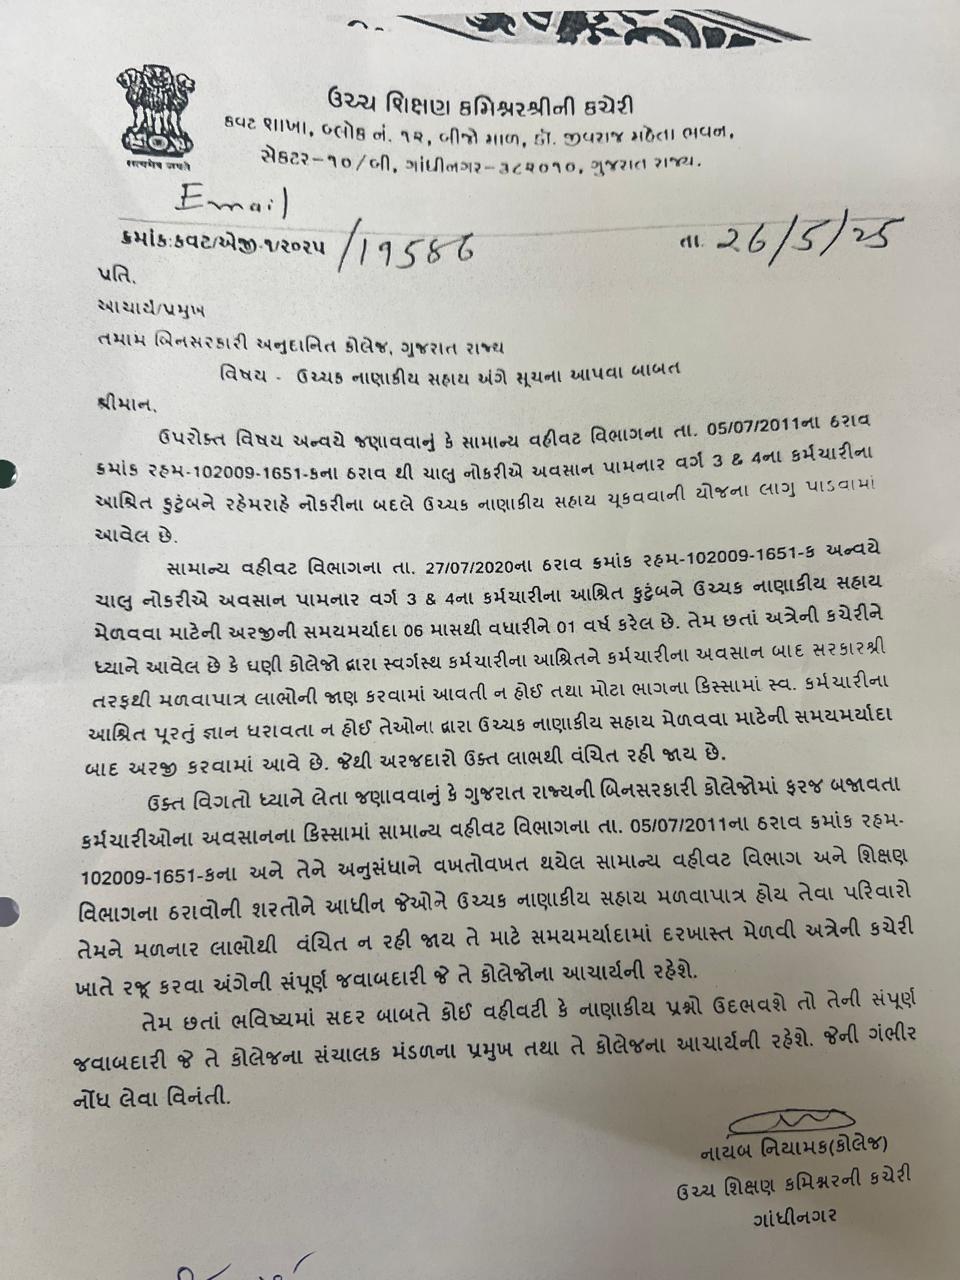 सत्यमेव जयते
ઉચ્ચ શિક્ષણ કમિશ્નરશ્રીની કચેરી
કવટ શાખા, બ્લોક નં. ૧૨, બીજો માળ, ડૉ. જીવરાજ મહેતા ભવન,
સેકટર-૧૦/બી, ગાંધીનગર-૩૮૨૦૧૦, ગુજરાત રાજ્ય.
Email
ક્રમાંક:કવટ/એજી-૧/૨૦૨૫ /19586 તા. 26/5/25
પ્રતિ,
આચાર્ય/પ્રમુખ
તમામ બિનસરકારી અનુદાનિત કોલેજ, ગુજરાત રાજ્ય
વિષય - ઉચ્ચક નાણાકીય સહાય અંગે સૂચના આપવા બાબત
શ્રીમાન,
ઉપરોક્ત વિષય અન્વયે જણાવવાનું કે સામાન્ય વહીવટ વિભાગના તા. 05/07/2011ના ઠરાવ
ક્રમાંક રહમ-102009-1651-કના ઠરાવ થી ચાલુ નોકરીએ અવસાન પામનાર વર્ગ 3 & 4ના કર્મચારીના
આશ્રિત કુટુંબને રહેમરાહે નોકરીના બદલે ઉચ્ચક નાણાકીય સહાય ચૂકવવાની યોજના લાગુ પાડવામાં
આવેલ છે.
સામાન્ય વહીવટ વિભાગના તા. 27/07/2020ના ઠરાવ ક્રમાંક રહમ-102009-1651-ક અન્વયે
ચાલુ નોકરીએ અવસાન પામનાર વર્ગ 3 & 4ના કર્મચારીના આશ્રિત કુટુંબને ઉચ્ચક નાણાકીય સહાય
મેળવવા માટેની અરજીની સમયમર્યાદા 06 માસથી વધારીને 01 વર્ષ કરેલ છે. તેમ છતાં અત્રેની કચેરીને
ધ્યાને આવેલ છે કે ઘણી કોલેજો દ્વારા સ્વર્ગસ્થ કર્મચારીના આશ્રિતને કર્મચારીના અવસાન બાદ સરકારશ્રી
તરફથી મળવાપાત્ર લાભોની જાણ કરવામાં આવતી ન હોઈ તથા મોટા ભાગના કિસ્સામાં સ્વ. કર્મચારીના
આશ્રિત પૂરતું જ્ઞાન ધરાવતા ન હોઈ તેઓના દ્વારા ઉચ્ચક નાણાકીય સહાય મેળવવા માટેની સમયમર્યાદા
બાદ અરજી કરવામાં આવે છે. જેથી અરજદારો ઉક્ત લાભથી વંચિત રહી જાય છે.
ઉક્ત વિગતો ધ્યાને લેતા જણાવવાનું કે ગુજરાત રાજ્યની બિનસરકારી કોલેજોમાં ફરજ બજાવતા
કર્મચારીઓના અવસાનના કિસ્સામાં સામાન્ય વહીવટ વિભાગના તા. 05/07/2011ના ઠરાવ ક્રમાંક રહમ-
102009-1651-કના અને તેને અનુસંધાને વખતોવખત થયેલ સામાન્ય વહીવટ વિભાગ અને શિક્ષણ
વિભાગના ઠરાવોની શરતોને આધીન જેઓને ઉચ્ચક નાણાકીય સહાય મળવાપાત્ર હોય તેવા પરિવારો
તેમને મળનાર લાભોથી વંચિત ન રહી જાય તે માટે સમયમર્યાદામાં દરખાસ્ત મેળવી અત્રેની કચેરી
ખાતે રજૂ કરવા અંગેની સંપૂર્ણ જવાબદારી જે તે કોલેજોના આચાર્યની રહેશે.
તેમ છતાં ભવિષ્યમાં સદર બાબતે કોઈ વહીવટી કે નાણાકીય પ્રશ્નો ઉદભવશે તો તેની સંપૂર્ણ
જવાબદારી જે તે કોલેજના સંચાલક મંડળના પ્રમુખ તથા તે કોલેજના આચાર્યની રહેશે. જેની ગંભીર
નોંધ લેવા વિનંતી.
નાયબ નિયામક(કોલેજ)
ઉચ્ચ શિક્ષણ કમિશ્નરની કચેરી
ગાંધીનગર